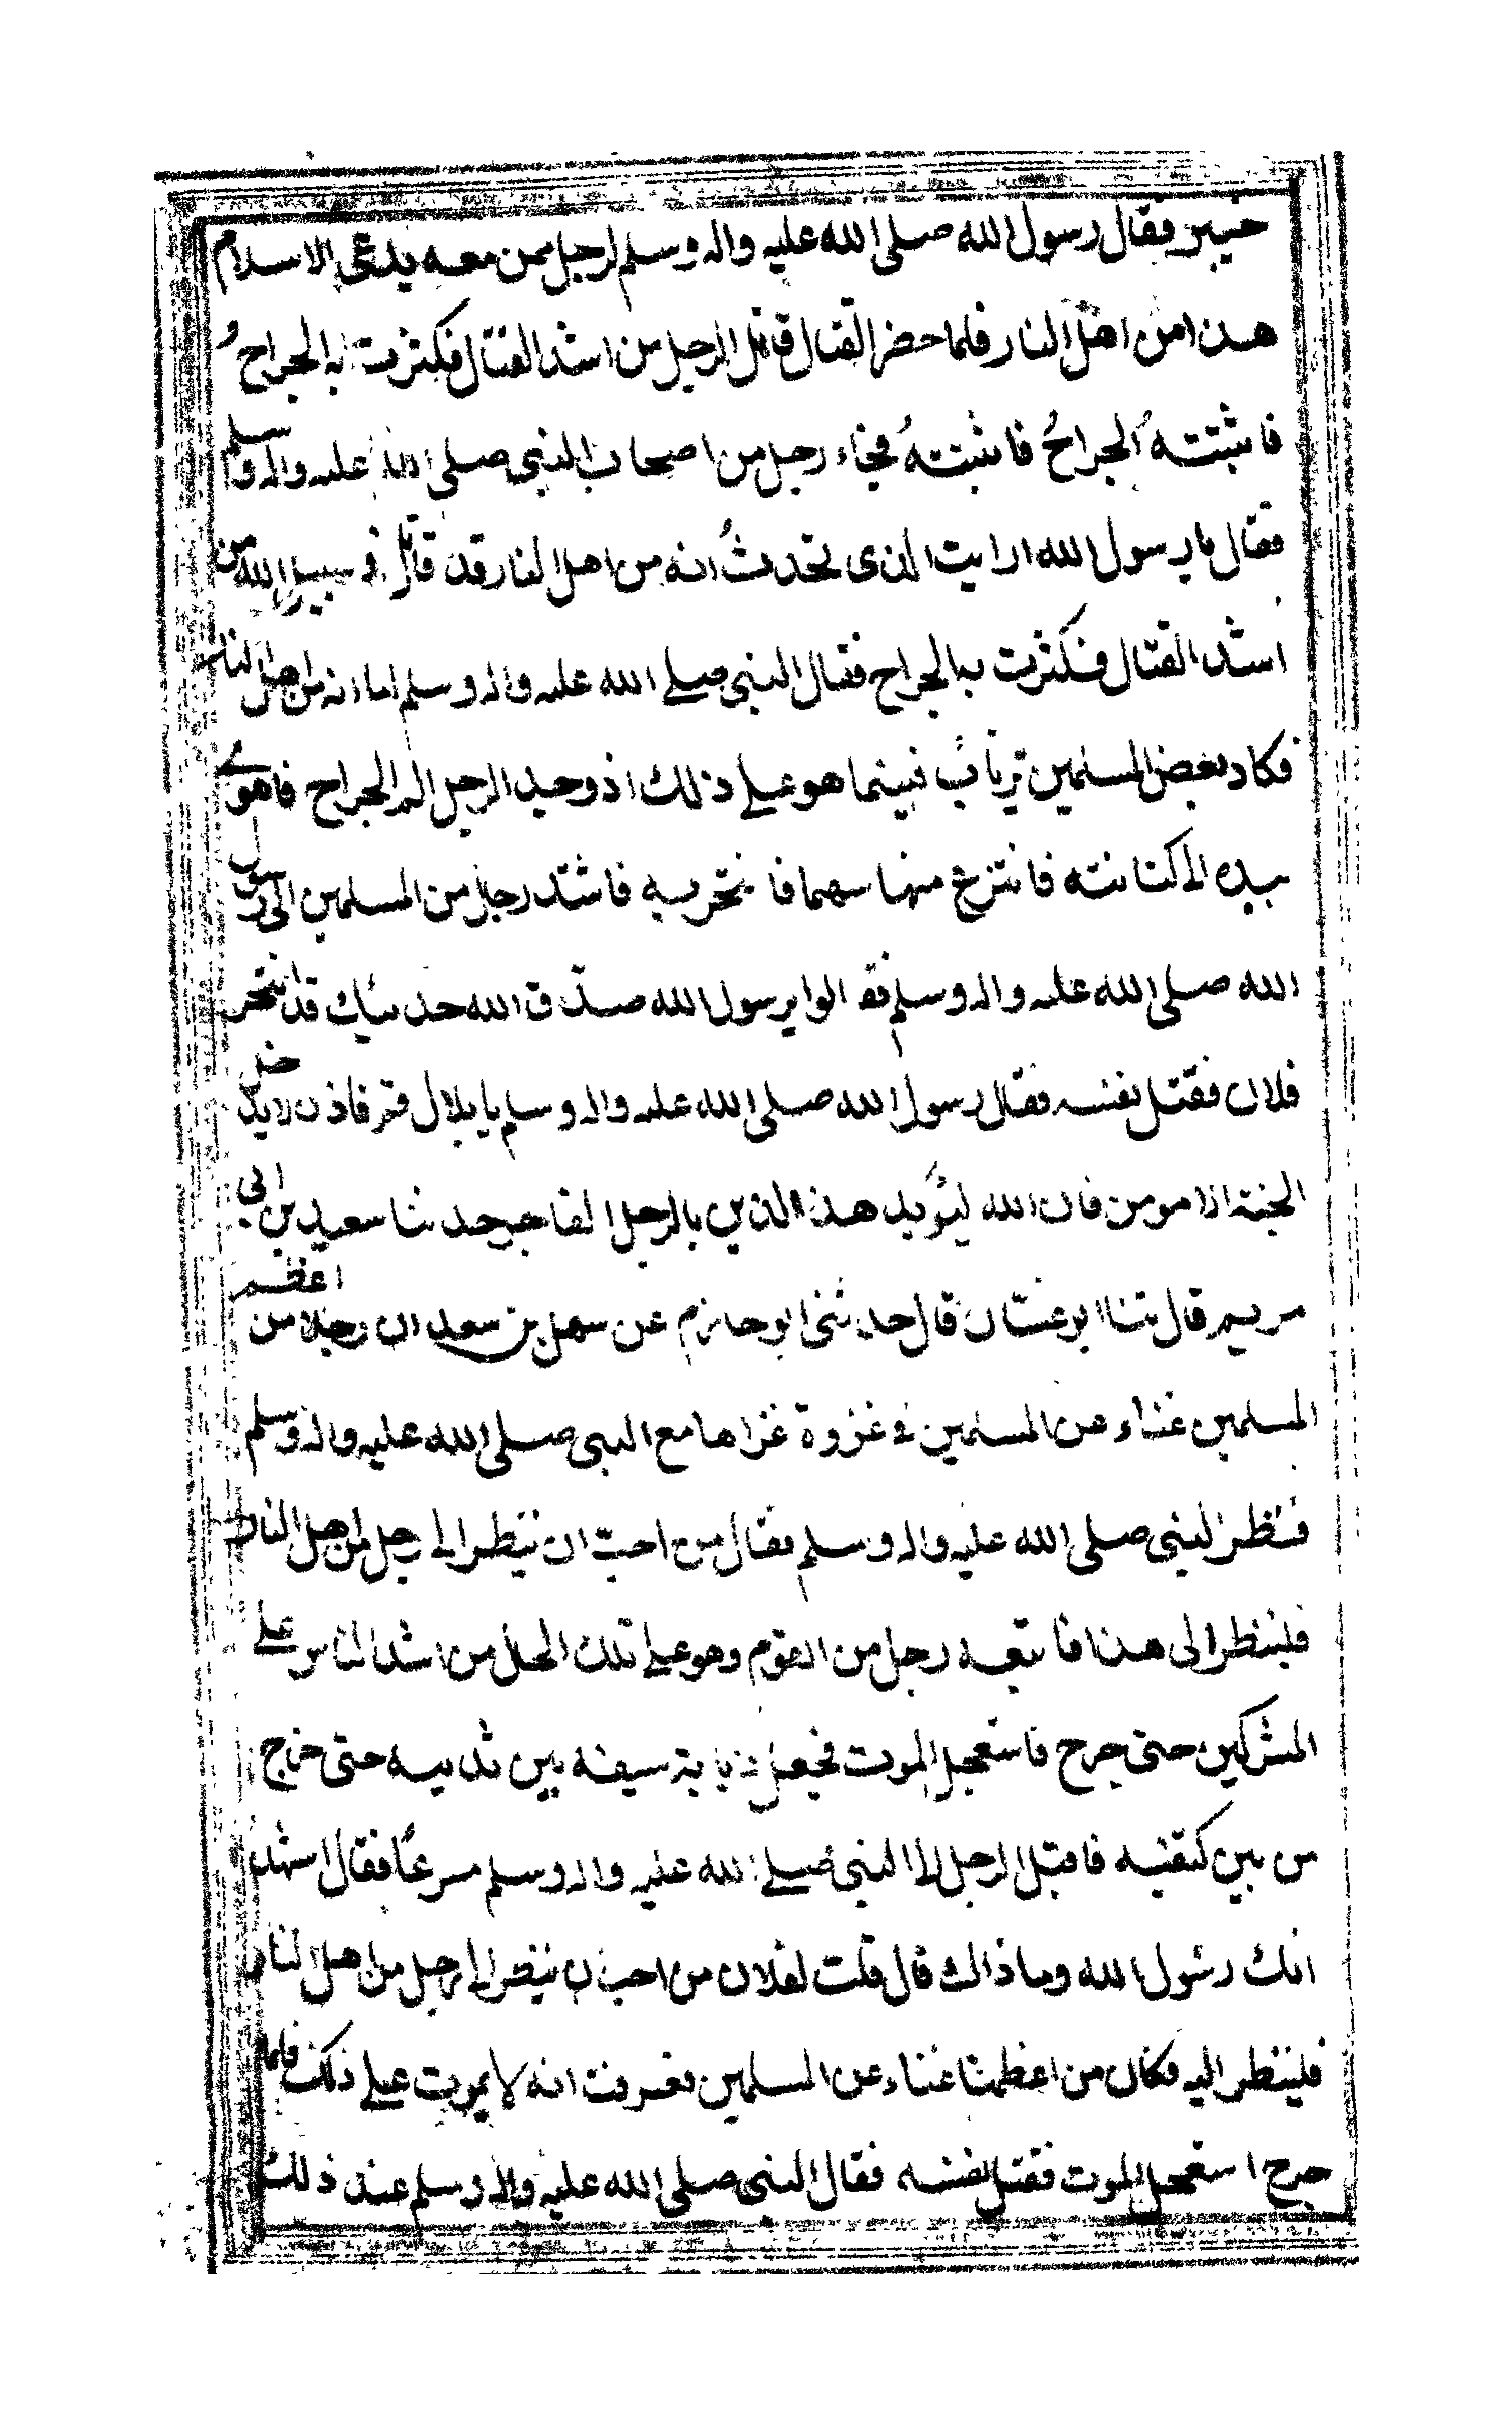 خيبر فقال رسول الله صلى الله عليه واله وسلم لرجل ممن معه يدعى الاسلام
هذا من اهل النار فلما حضر القتال قاتل الرجل من اشد القتال فكثرت به الجراحُ
فاثبتتهُ الجراحُ فاثبتتهُ فجاء رجل من اصحاب النبي صلى الله عليه واله وسلم
فقال يا رسول الله ارايت الذى تحدثُ انه من اهل النار قد قاتل فى سبيل الله من
اشد القتال فكثرت به الجراح فقال النبي صلے الله عليه واله وسلم اما انه من اهل النار
فكاد بعض المسلمين يرتاب فبينما هو علے ذلك اذ وجد الرجل الم الجراح فاهوى
بيده الى كنانته فانتزع منها سهما فانتحر به فاشتد رجل من المسلمين الى رسول
الله صلى الله عليه واله وسلم فقالوا يرسول الله صدّق الله حديثك قد انتحر
فلان فقتل نفسه فقال رسول الله صلى الله عليه واله وسلم يا بلال قم فاذن لا يدخل
الجنة الا مومن فان الله ليؤيد هذا الدين بالرجل الفاجر حدثنا سعيد بن ابي
مريم قال ثنا ابو غسّان قال حدثنى ابو حازم عن سهل بن سعد ان رجلا من اعظم
المسلمين غناء عن المسلمين فى غزوة غزاها مع النبى صلى الله عليه واله وسلم
فنظر النبي صلى الله عليه واله وسلم فقال من احبّ ان ينظر الى رجل من اهل النار
فلينظر الى هذا فاتبعه رجل من القوم وهو علے تلك الحال من اشد الناس علے
المشركين حتى جرح فاستعجل الموت فجعل ذبابة سيفه بين ثدييه حتى خرج
من بين كتفيه فاقبل الرجل الى النبي صلے الله عليه واله وسلم مسرعًا فقال اشهد
انك رسول الله وما ذالك قال قلت لفلان من احب ان ينظر الى رجل من اهل النار
فلينظر اليه فكان من اعظمنا غناء عن المسلمين فعرفت انه لا يموت علے ذلك فلما
جرح استعجل الموت فقتل نفسه فقال النبى صلى الله عليه واله وسلم عند ذلك